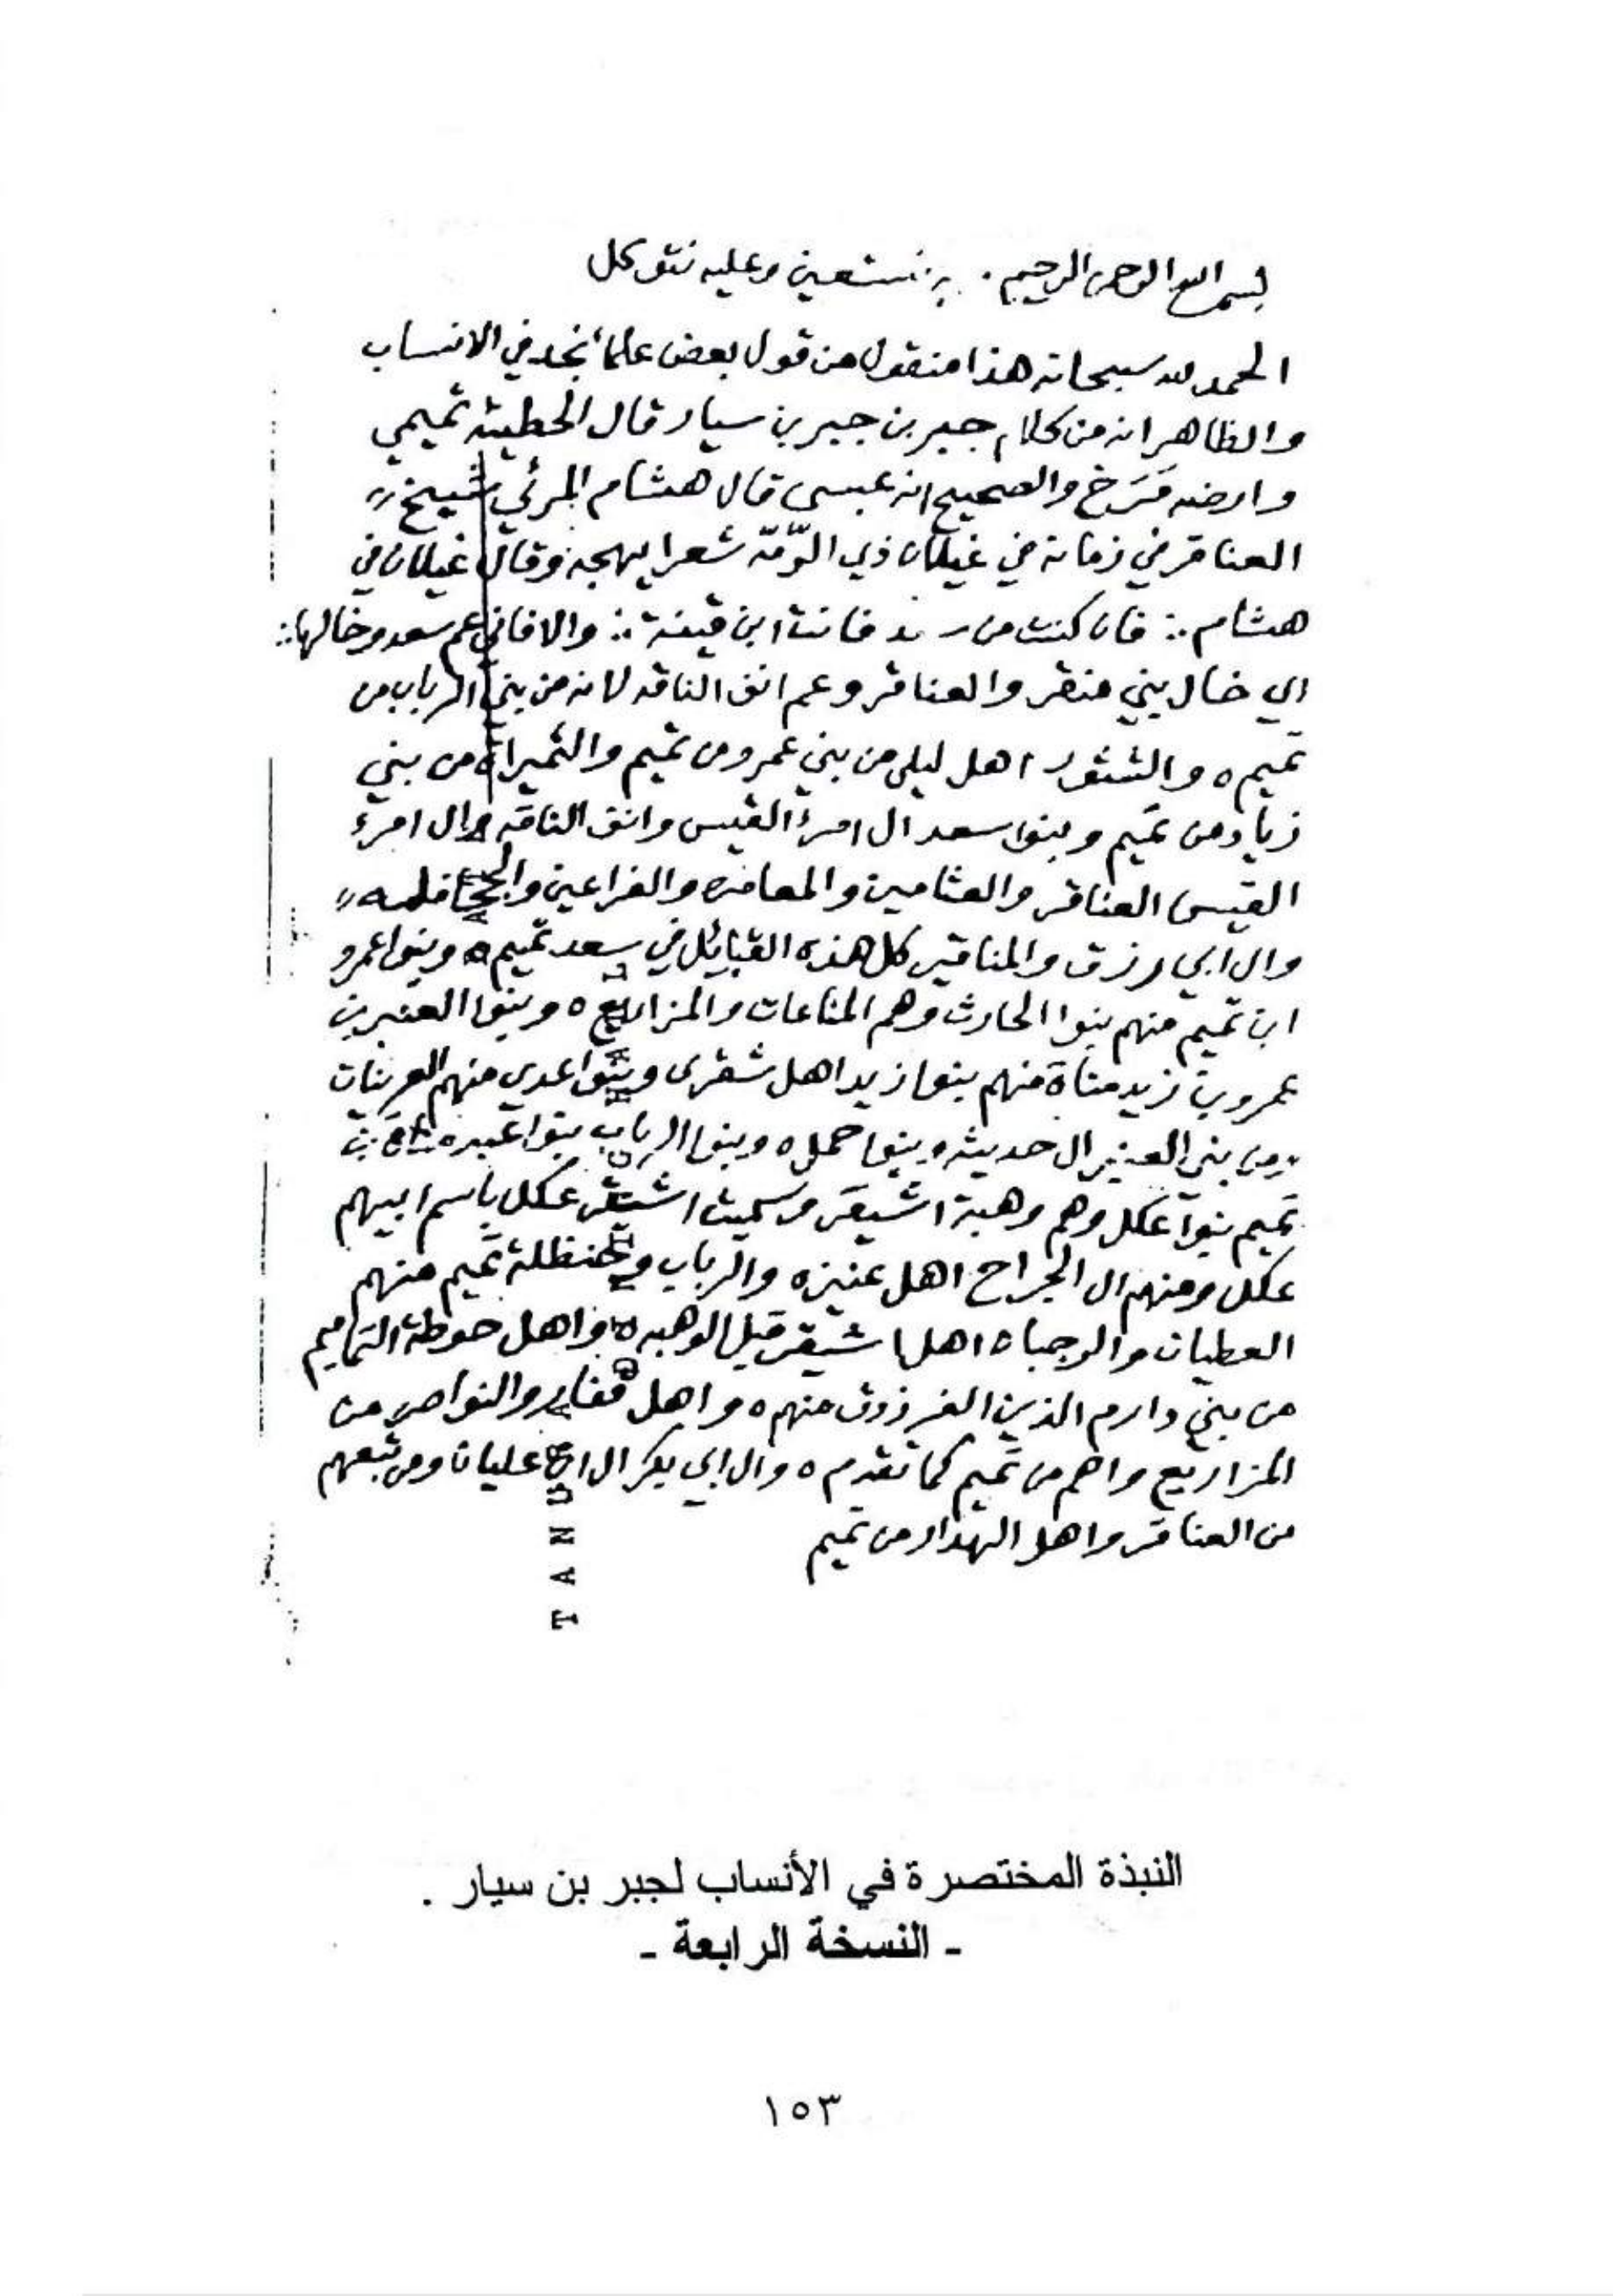 بسم الله الرحمن الرحيم . به نستعين وعليه نتوكل
الحمد لله سبحانه هذا منقول من قول بعض علماء نجد في الانساب
والظاهر انه من كلام جبر بن جبر بن سيار قال الحطيئة تميمي
وارضه مَرَخ والصحيح انه عبسى قال هشام المرئي شيخ
العناقر في زمانه في غيلان ذي الرّمّة شعرا يهجه وقال غيلان في
هشام ∴ فان كنت من فانت ابن قينة ∴ والا فاني عم سعد وخالها ∴
اي خال بني منقر والعناقر وعم انف الناقه لانه من بني الرباب من
تميم ٥ والشثور اهل ليلى من بني عمرو من تميم والثميرات من بني
زياد من تميم وبنوا سعد ال امرء القيس وانف الناقه وال امرء
القيس العناقر والعثامين والمعافره والفراعين والجحافله
وال ابي رزق والمناقير كل هذه القبايل في سعد تميم ٥ وبنوا عمرو
ابن تميم منهم بنوا الحارث وهم المناعات والمزاريع ٥ وبنوا العنبر بن
عمرو بن زيد مناة منهم بنوا زيد اهل شقرى وبنوا عدي منهم العرينات
ومن بني العنبر ال حديثه وبنوا حمل ٥ وبنوا الرباب بنوا عبده بن
تميم بنوا عكل وهم وهبة اشيقر وسميت اشيقر عكل باسم ابيهم
عكل ومنهم ال الجراح اهل عنيزه والرباب وحنظلة تميم منهم
العطيان والوجبان اهل اشيقر قبل الوهبه ٥ واهل حوطة التماميم
من بني دارم الذين الفرزدق منهم ٥ واهل قفار والنواصر من
المزاريع واهم من تميم كما تقدم ٥ وال ابي بكر ال عليان ومن تبعهم
من العناقر واهل الهدار من تميم
TAN
النبذة المختصرة في الأنساب لجبر بن سيار .
- النسخة الرابعة -
١٥٣